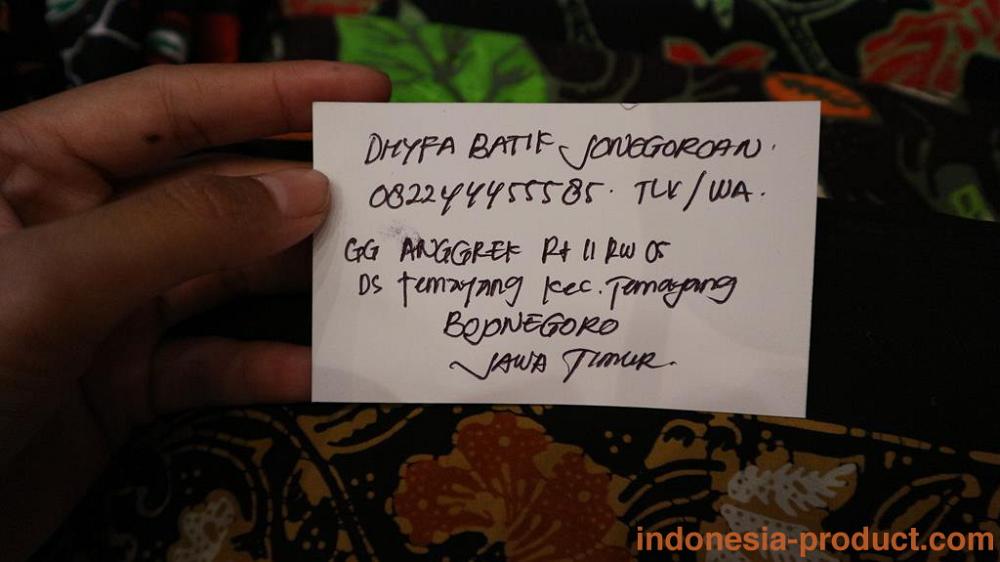 DHYFA BATIK JONEGOROAN.
082244455585. TLK/WA.
GG ANGGREK Rt 11 RW 05
DS temayang Kec. Temayang
BOJONEGORO
JAWA TIMUR.
indonesia-product.com